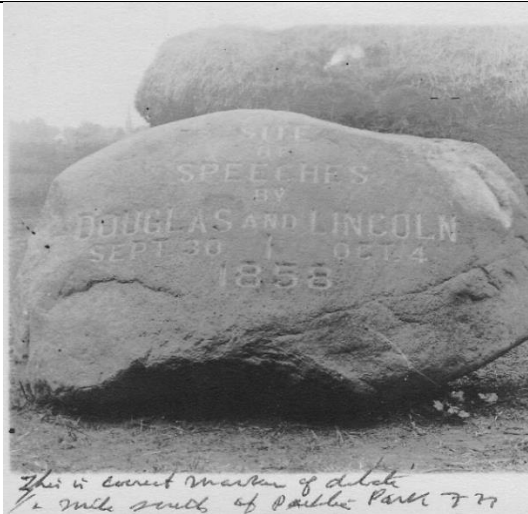 SITE
OF
SPEECHES
BY
DOUGLAS AND LINCOLN
SEPT. 30 OCT. 4
1858
This is correct marker of debate
mile south of Park